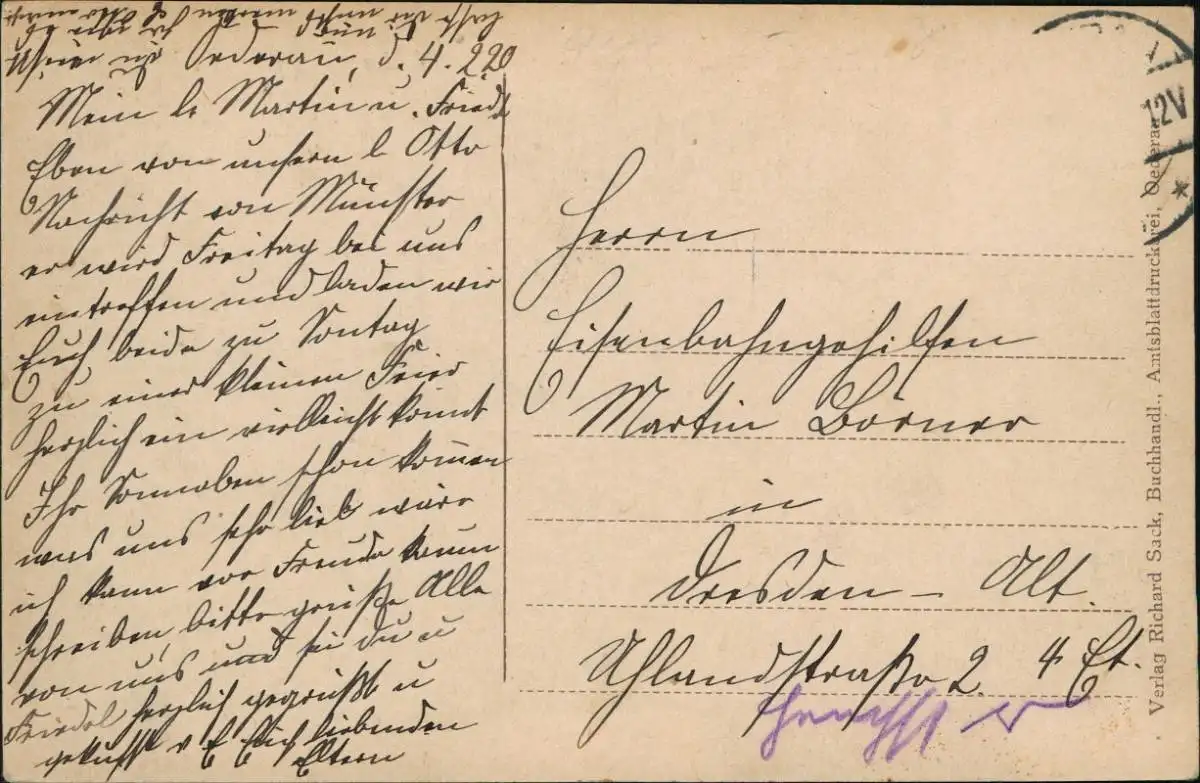 Oederan, d. 4. 2. 20
Mein l. Martin u. Friedl
Eben von unsern l. Otto
Nachricht von Münster
er wird Freitag bei uns
eintreffen und laden wir
Euch beide zu Sontag
zu einer kleinen Feier
herzlich ein vielleicht könnt
Ihr Sonnaben schon kommen
was uns sehr lieb wäre
ich kann vor Freude kaum
schreiben, bitte grüße Alle
von uns und sei du u
Friedel herzlich gegrüßt u
geküßt v E Euch liebenden
Eltern
Herrn
Eisenbahngehilfen
Martin Börner
in
Dresden - Alt.
Uhlandstraße 2. 4 Et.
12V
*
Verlag Richard Sack, Buchhandl., Amtsblattdruckerei, Oederan